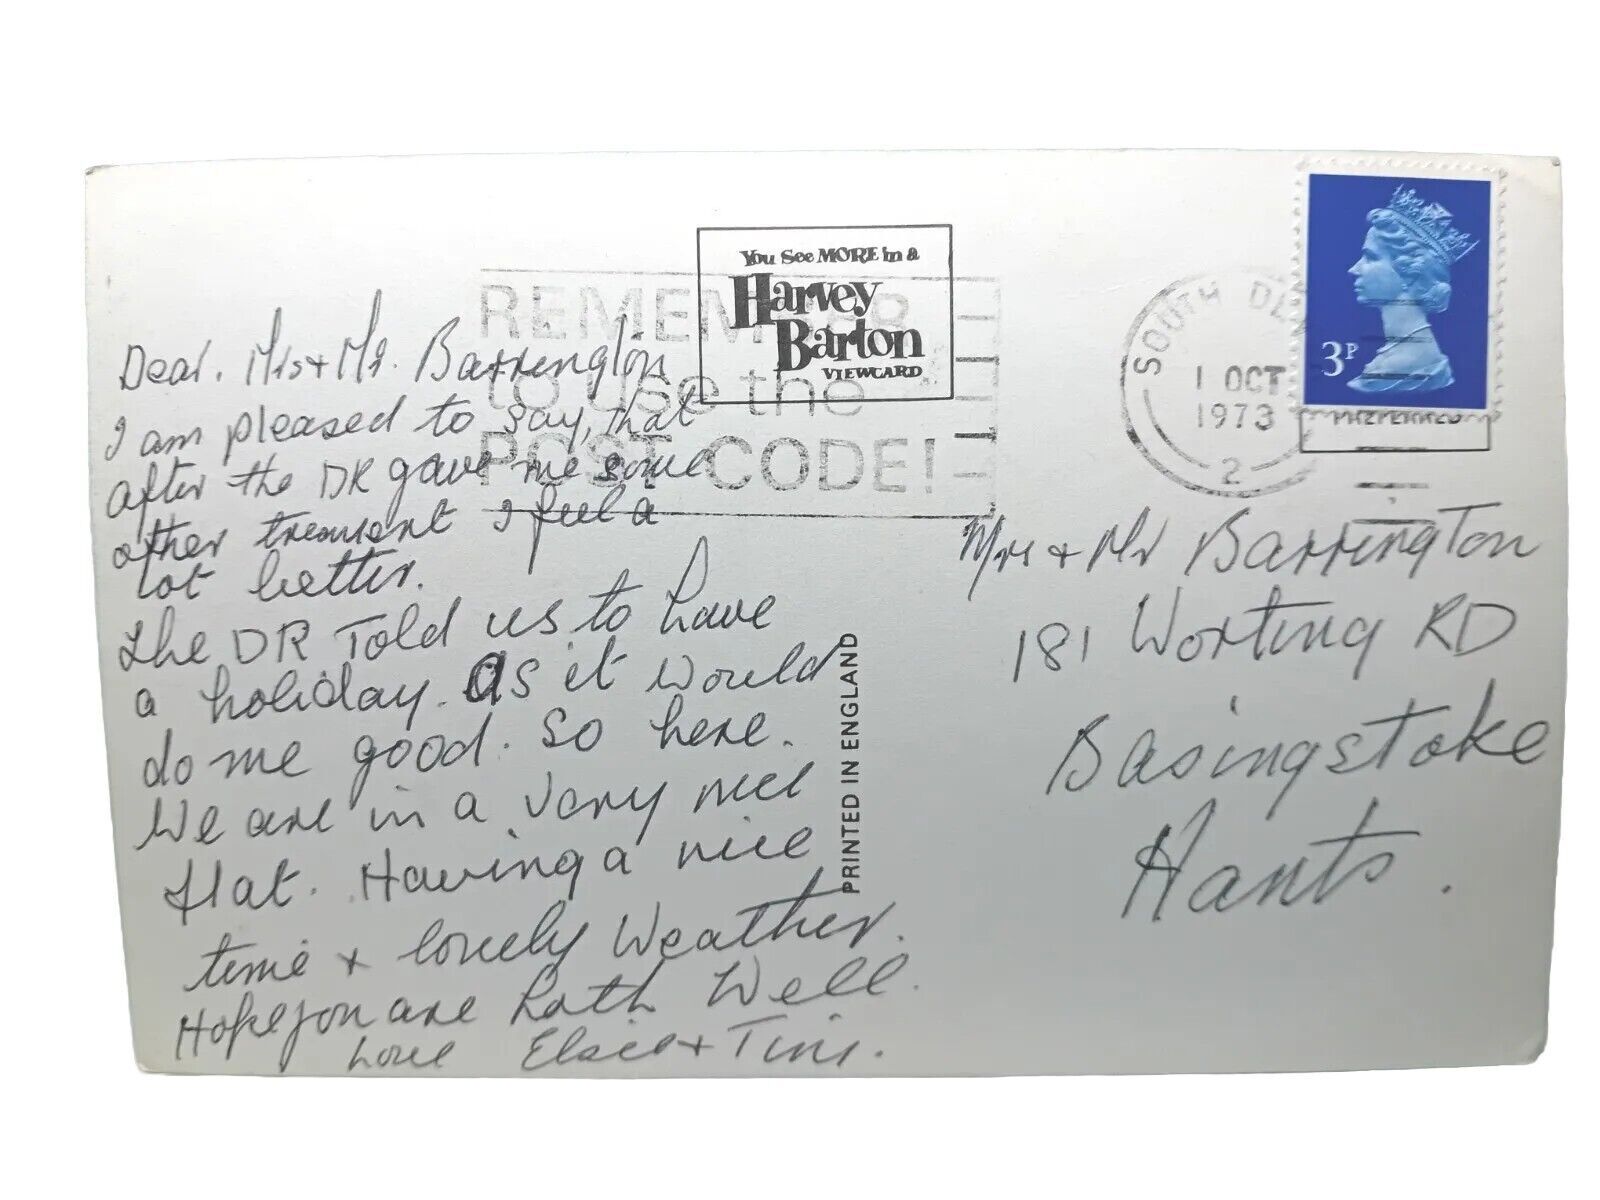 You See MORE in a
Harvey
Barton
VIEWCARD
REMEMBER
to use the
POST CODE!
SOUTH DEV
1 OCT
1973
2
3P
Dear. Mrs + Mr. Barrington
I am pleased to say, that
after the DR gave me some
other I feel a
lot better.
The DR Told us to have
a holiday. as it would
do me good. So here.
We are in a very nice
flat. Having a nice
time + lovely Weather.
Hope you are both Well.
Love Elsie + Tim.
PRINTED IN ENGLAND
Mrs + Mr Barrington
181 Worting RD
Basingstoke
Hants.